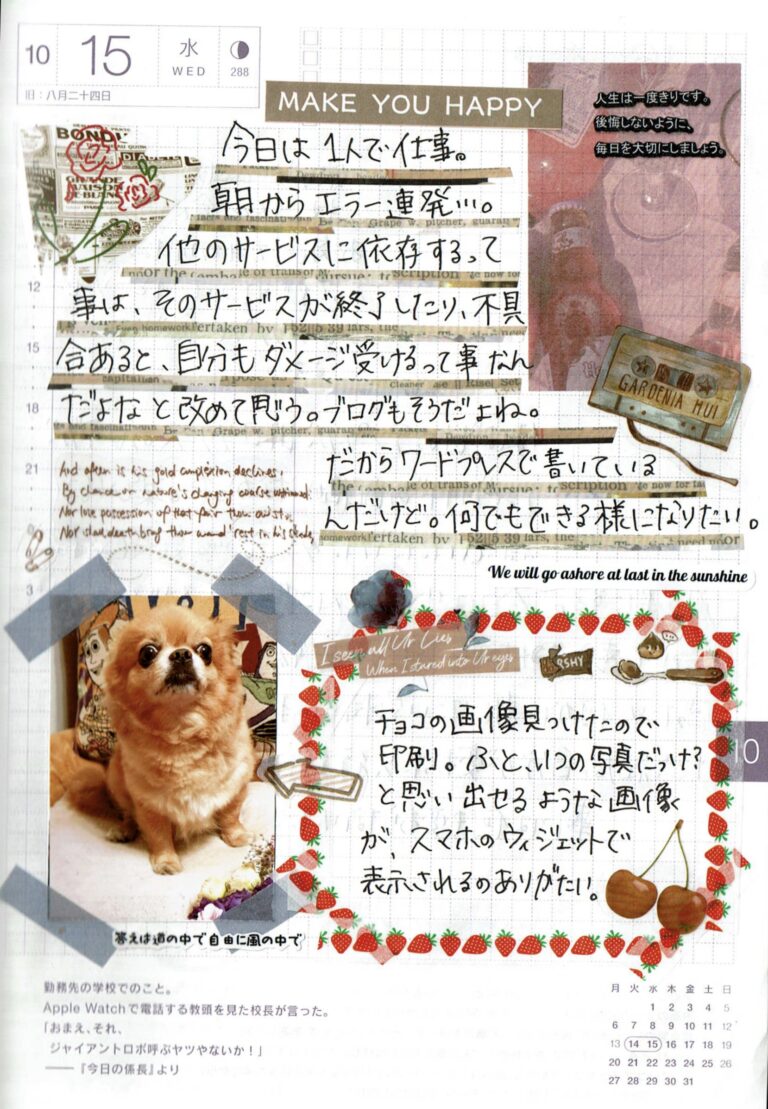 10
15
水
WED
288
旧：八月二十四日
MAKE YOU HAPPY
人生は一度きりです。
後悔しないように、
毎日を大切にしましょう。
BONDI
今日は1人で仕事。
朝からエラー連発…。
他のサービスに依存するって
事は、そのサービスが終了したり、不具
合あると、自分もダメージ受けるって事なん
だよなと改めて思う。ブログもそうだよね。
だからワードプレスで書いている
んだけど。何でもできる様になりたい。
12
15
18
21
3
GARDENIA HUI
And often is his gold complexion
By chance or nature's changing course untrimmed
Nor lose possession of that fair thou ow'st
We will go ashore at last in the sunshine
I seen all Ur Lies
When I stared into Ur eyes
RSHY
チョコの画像見つけたので
印刷。ふと、いつの写真だっけ？
と思い出せるような画像
が、スマホのウィジェットで
表示されるのありがたい。
答えは道の中で自由に風の中で
10
勤務先の学校でのこと。
Apple Watchで電話する教頭を見た校長が言った。
「おまえ、それ、
ジャイアントロボ呼ぶヤツやないか！」
――『今日の係長』より
月 火 水 木 金 土 日
1 2 3 4 5
6 7 8 9 10 11 12
13 14 15 16 17 18 19
20 21 22 23 24 25 26
27 28 29 30 31